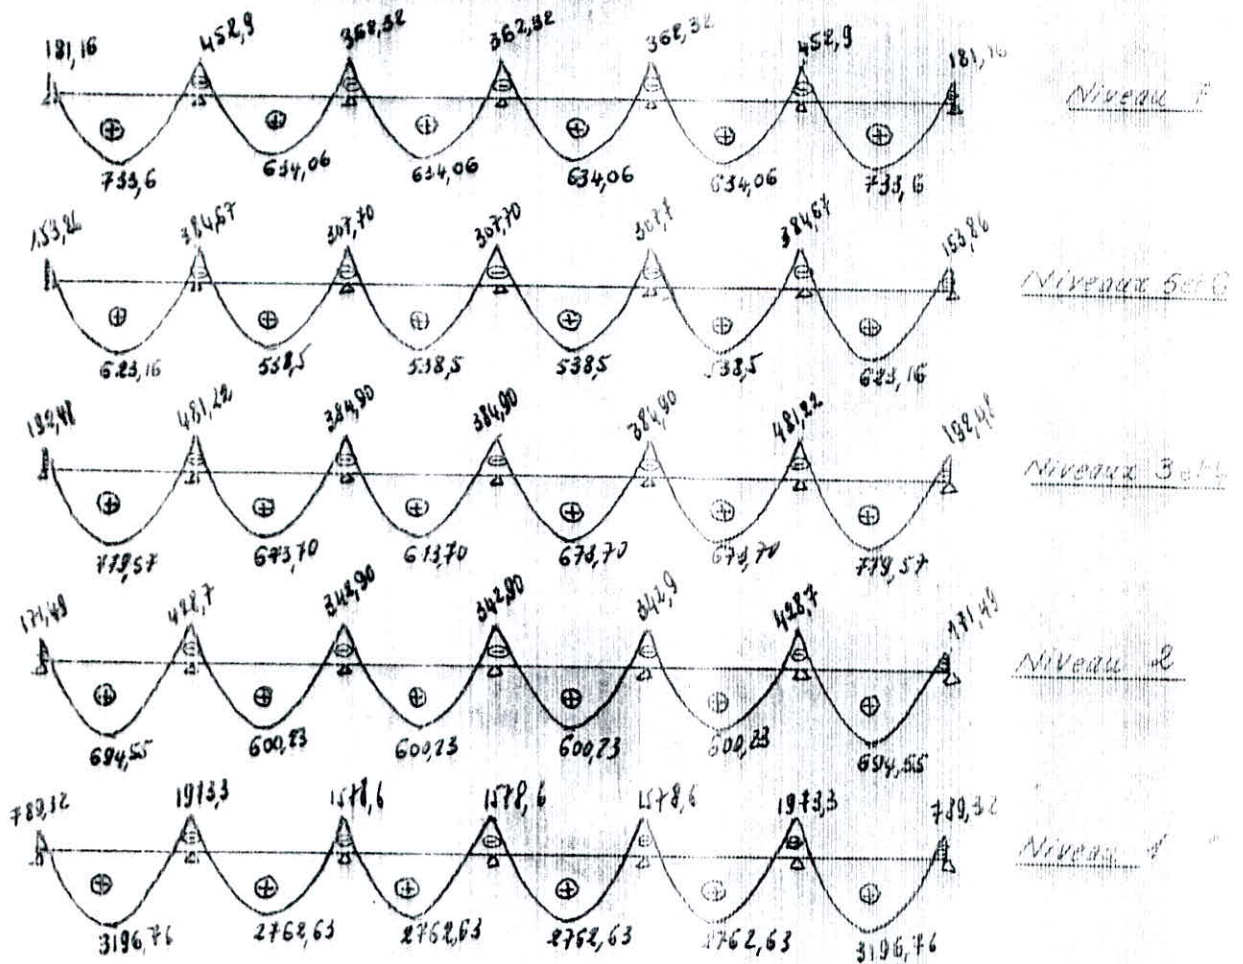 181,16 452,9 362,32 362,32 362,32 452,9 181,16
Niveau 7
733,6 634,06 634,06 634,06 634,06 733,6
153,86 384,67 307,70 307,70 307,7 384,67 153,86
Niveaux 5 et 6
623,16 538,5 538,5 538,5 538,5 623,16
192,48 481,22 384,90 384,90 384,90 481,22 192,48
Niveaux 3 et 4
779,57 673,70 673,70 673,70 673,70 779,57
171,49 428,7 342,90 342,90 342,9 428,7 171,49
Niveau 2
694,55 600,23 600,23 600,23 600,23 694,55
789,32 1973,3 1578,6 1578,6 1578,6 1973,3 789,32
Niveau 1
3196,76 2762,63 2762,63 2762,63 2762,63 3196,76